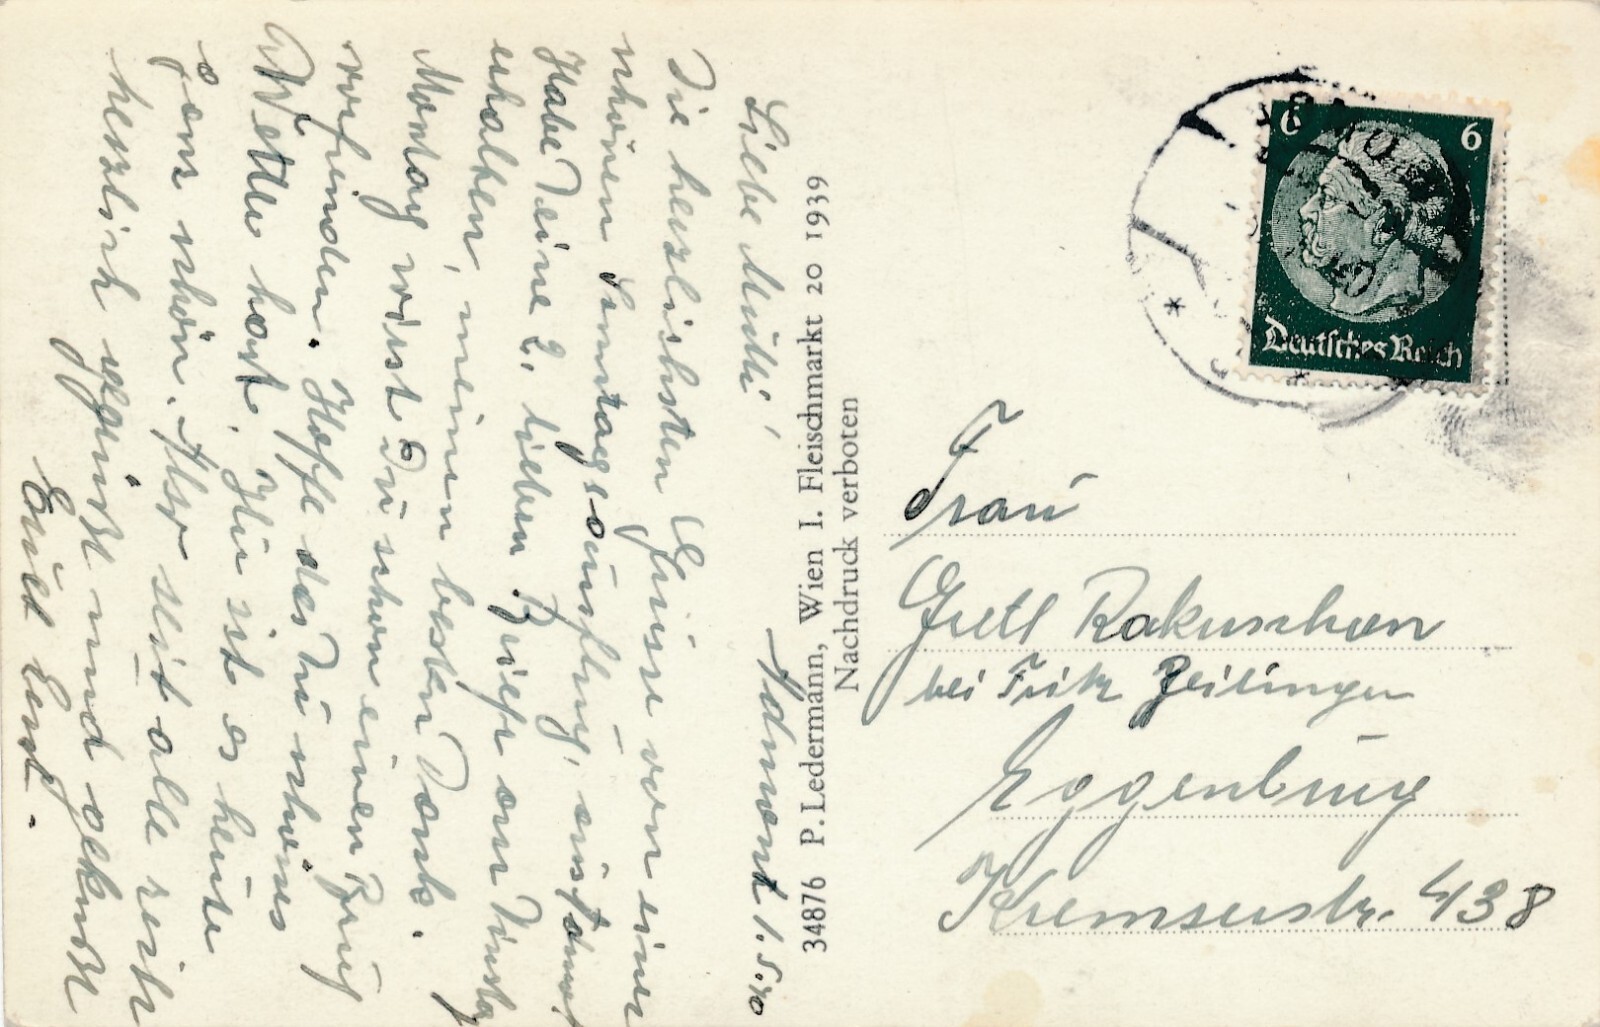 Admont 1.5.40
Liebe Mutti,
Die herzlichsten Grüsse von einer
schönen Sonntagsausflug, aus Admont
Habe Deine 2. lieben Briefe am Dinstag
erhalten, meinen besten Dank.
Montag wirst Du schon einen Brief
vorfinden. Hoffe das Du schönes
Wetter hast. Hier ist es heute
ganz schön. Also seit alle recht
herzlich gegrüßt und geküßt
Euer Ernst.
34876 P. Ledermann, Wien I. Fleischmarkt 20 1939
Nachdruck verboten
6 6
Deutsches Reich
Frau
Gretl Rakuschan
bei Fritz Zeilinger
Eggenburg
Kremserstr. 438